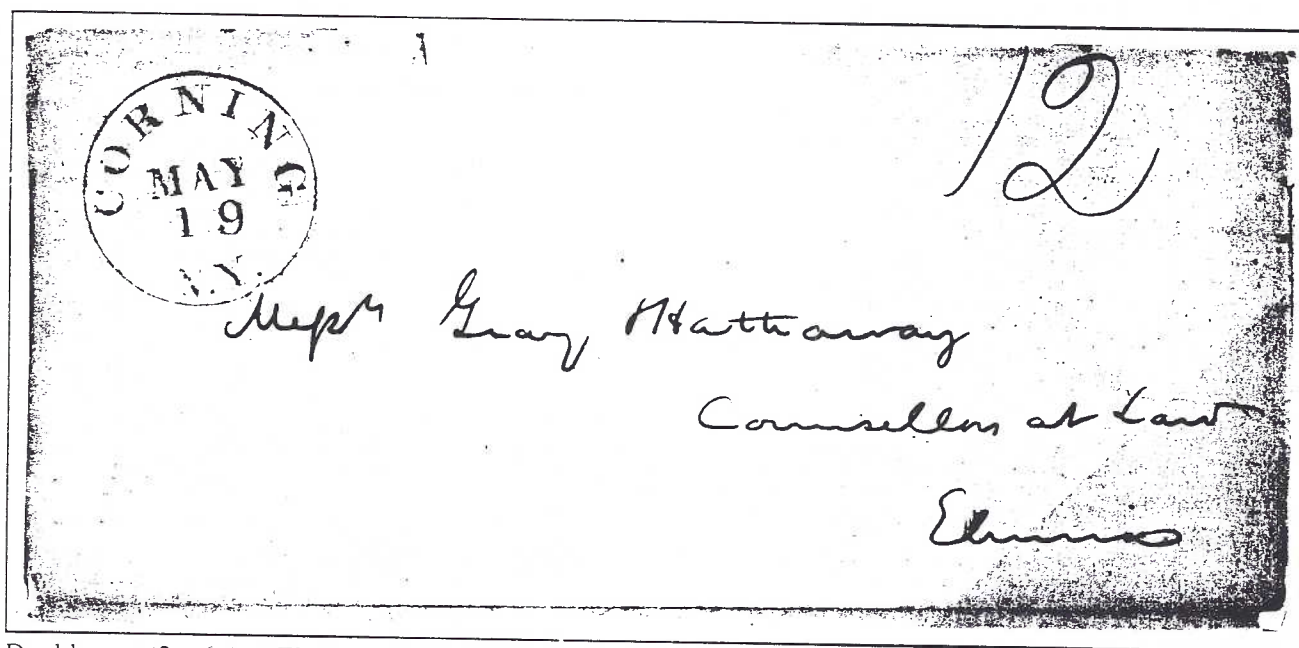 CORNING
MAY
19
N.Y.
12
Messrs Gray & Hathaway
Counsellors at Law
Elmira